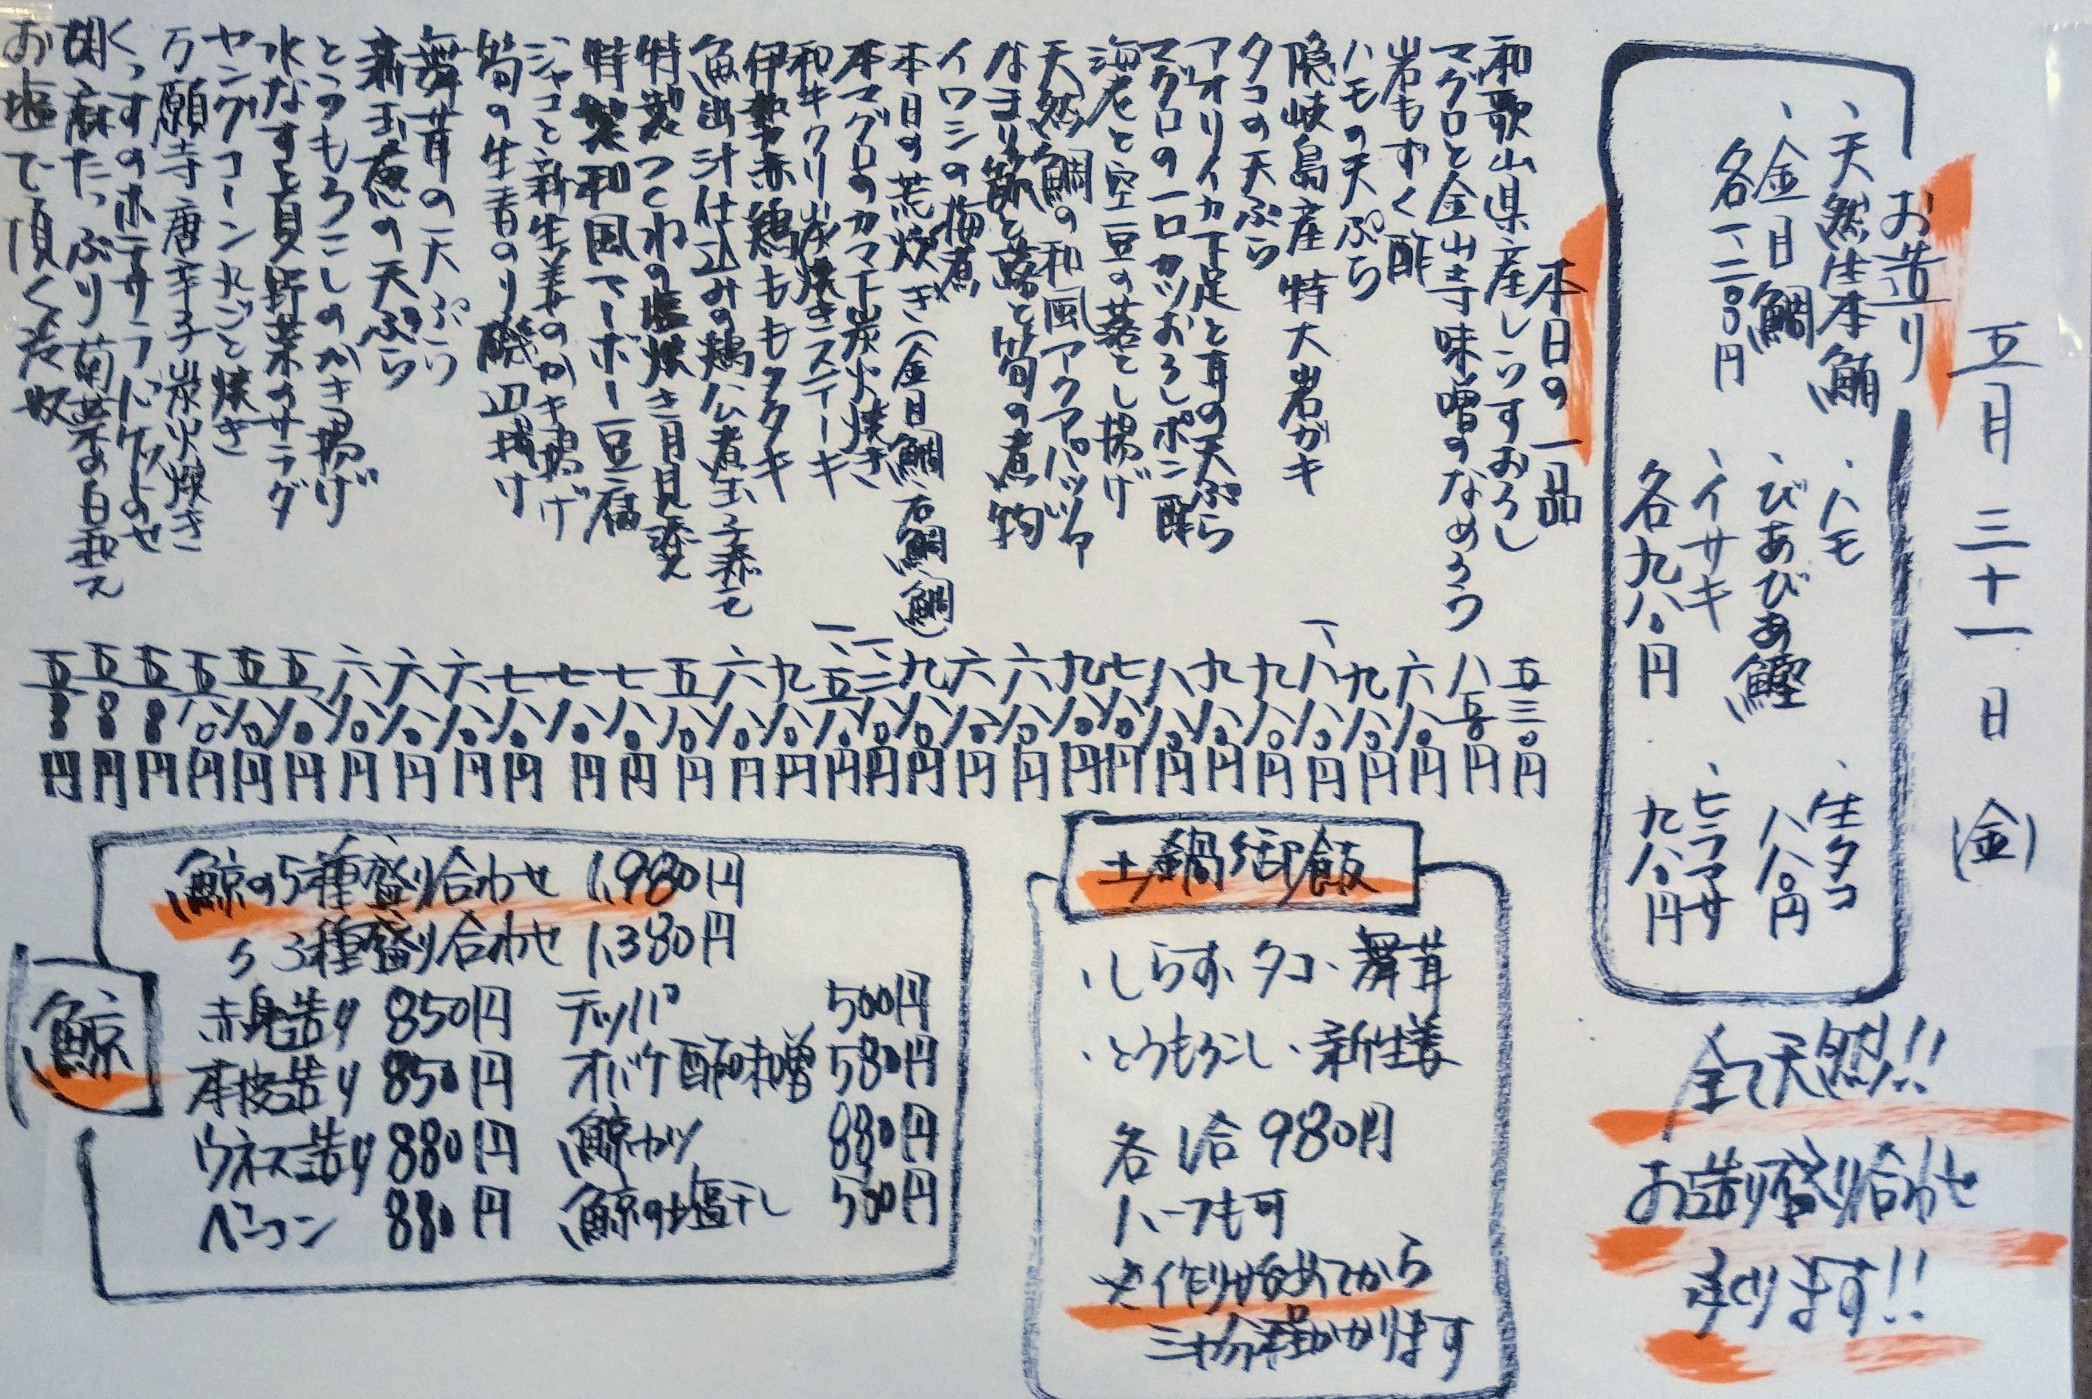 五月三十一日(金)
お造り
、天然生本鮪
、金目鯛
各一二〇〇円
、ハモ
、びあびあ鰹
、イサキ
各九八〇円
、生タコ
八八〇円
、ヒラマサ
九八〇円
全て天然!!
お造り盛り合わせ
承ります!!
本日の一品
和歌山県産しらすおろし 五三〇円
マグロと金山寺味噌のなめろう 八五〇円
岩もずく酢 六八〇円
ハモの天ぷら 九八〇円
隠岐島産特大岩ガキ 一、八八〇円
タコの天ぷら 九八〇円
アオリイカ下足と耳の天ぷら 九八〇円
マグロの一口カツおろしポン酢 八八〇円
海老と空豆の落とし揚げ 七八〇円
天然鯛の和風アクアパッツァ 九八〇円
なまり節と蕗と筍の煮物 六八〇円
イワシの梅煮 六八〇円
本日の荒炊き(金目鯛、石鯛、鯛) 九八〇円
本マグロのカマ下炭火焼き 一、二八〇円
和牛クリ炭焼きステーキ 一、五八〇円
伊勢赤鶏もものタタキ 九八〇円
魚出汁仕込みの鶏ハム煮玉子添え 六八〇円
特製つくねの塩焼き月見添え 五八〇円
特製和風マーボー豆腐 七八〇円
ジャコと新生姜のかき揚げ 七八〇円
筍の生青のり磯辺揚げ 七八〇円
舞茸の天ぷら 六八〇円
新玉葱の天ぷら 六八〇円
とうもろこしのかき揚げ 六八〇円
水なすと夏野菜のサラダ 五八〇円
ヤングコーン丸ごと焼き 五八〇円
万願寺唐辛子炭火焼き 五八〇円
くずすのポテサラバゲットのせ 五五〇円
胡麻たっぷり菊菜の白和え 五五〇円
お塩で頂く冷奴 五五〇円
土鍋御飯
、しらす、タコ、舞茸
、とうもろこし、新生姜
各1合 980円
ハーフも可
※作り始めてから
三十分程かかります
鯨
鯨の5種盛り合わせ 1,980円
〃 3種盛り合わせ 1,380円
赤身造り 850円 テッパ 500円
本皮造り 850円 オバケ酢味噌 580円
ウネス造り 880円 鯨カツ 880円
ベーコン 880円 鯨の塩干し 500円